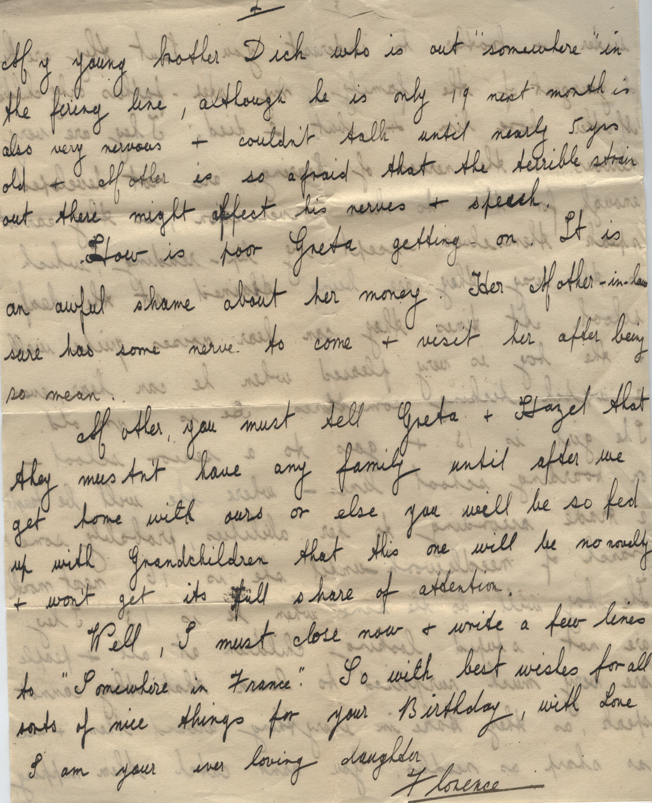 My young brother Dick who is out "somewhere" in
the firing line, although he is only 19 next month is
also very nervous + couldn't talk until nearly 5 yrs
old + Mother is so afraid that the terrible strain
out there might affect his nerves + speech.
How is poor Greta getting on. It is
an awful shame about her money. Her Mother-in-law
sure has some nerve to come + visit her after being
so mean.
Mother, you must tell Greta + Hazel that
they mustn't have any family until after we
get home with ours or else you well be so fed
up with Grandchildren that this one will be no novelty
+ won't get its full share of attention.
Well, I must close now + write a few lines
to "Somewhere in France". So with best wishes for all
sorts of nice things for your Birthday, with Love
I am your ever loving daughter
Florence